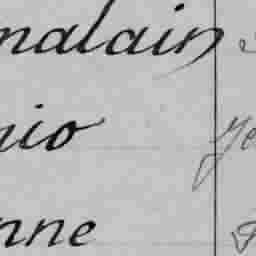 nalain
nio
nne